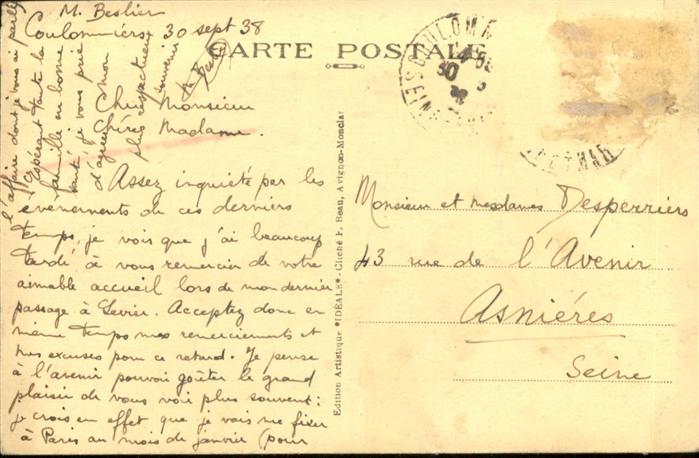 M. Beslier
Coulommiers 30 sept 38
CARTE POSTALE
Cher Monsieur
Chère Madame.
Assez inquiété par les
évènements de ces derniers
temps, je vois que j'ai beaucoup
tardé à vous remercier de votre
aimable accueil lors de mon dernier
passage à Levier. Acceptez donc en
même temps mes remerciements et
mes excuses pour ce retard. Je pense
à l'avenir pouvoir goûter le grand
plaisir de vous voir plus souvent:
je crois en effet que je vais me fixer
à Paris au mois de janvier (pour
l'affaire dont je vous ai parlé)
Espérant toute la
famille en bonne
santé je vous prie
d'agréer mon
plus respectueux
souvenir
Edition Artistique "IDÉALE" - Cliché F. Beau, Avignon-Monclar
COULOMM
SEINE
30
38
MAR
Monsieur et mesdames Desperriers
43 rue de l'Avenir
Asnières
Seine